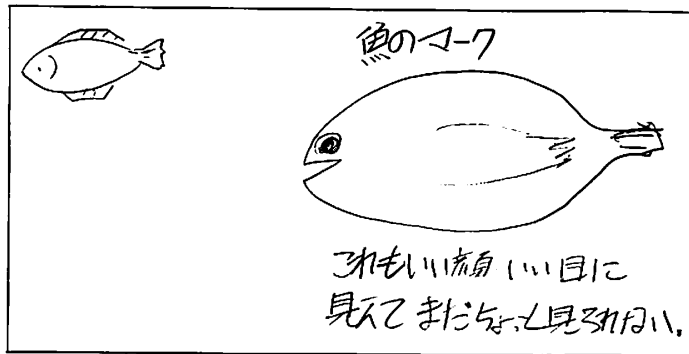 魚のマーク
これもいい顔 いい目に
見えて まだちょっと見られない.